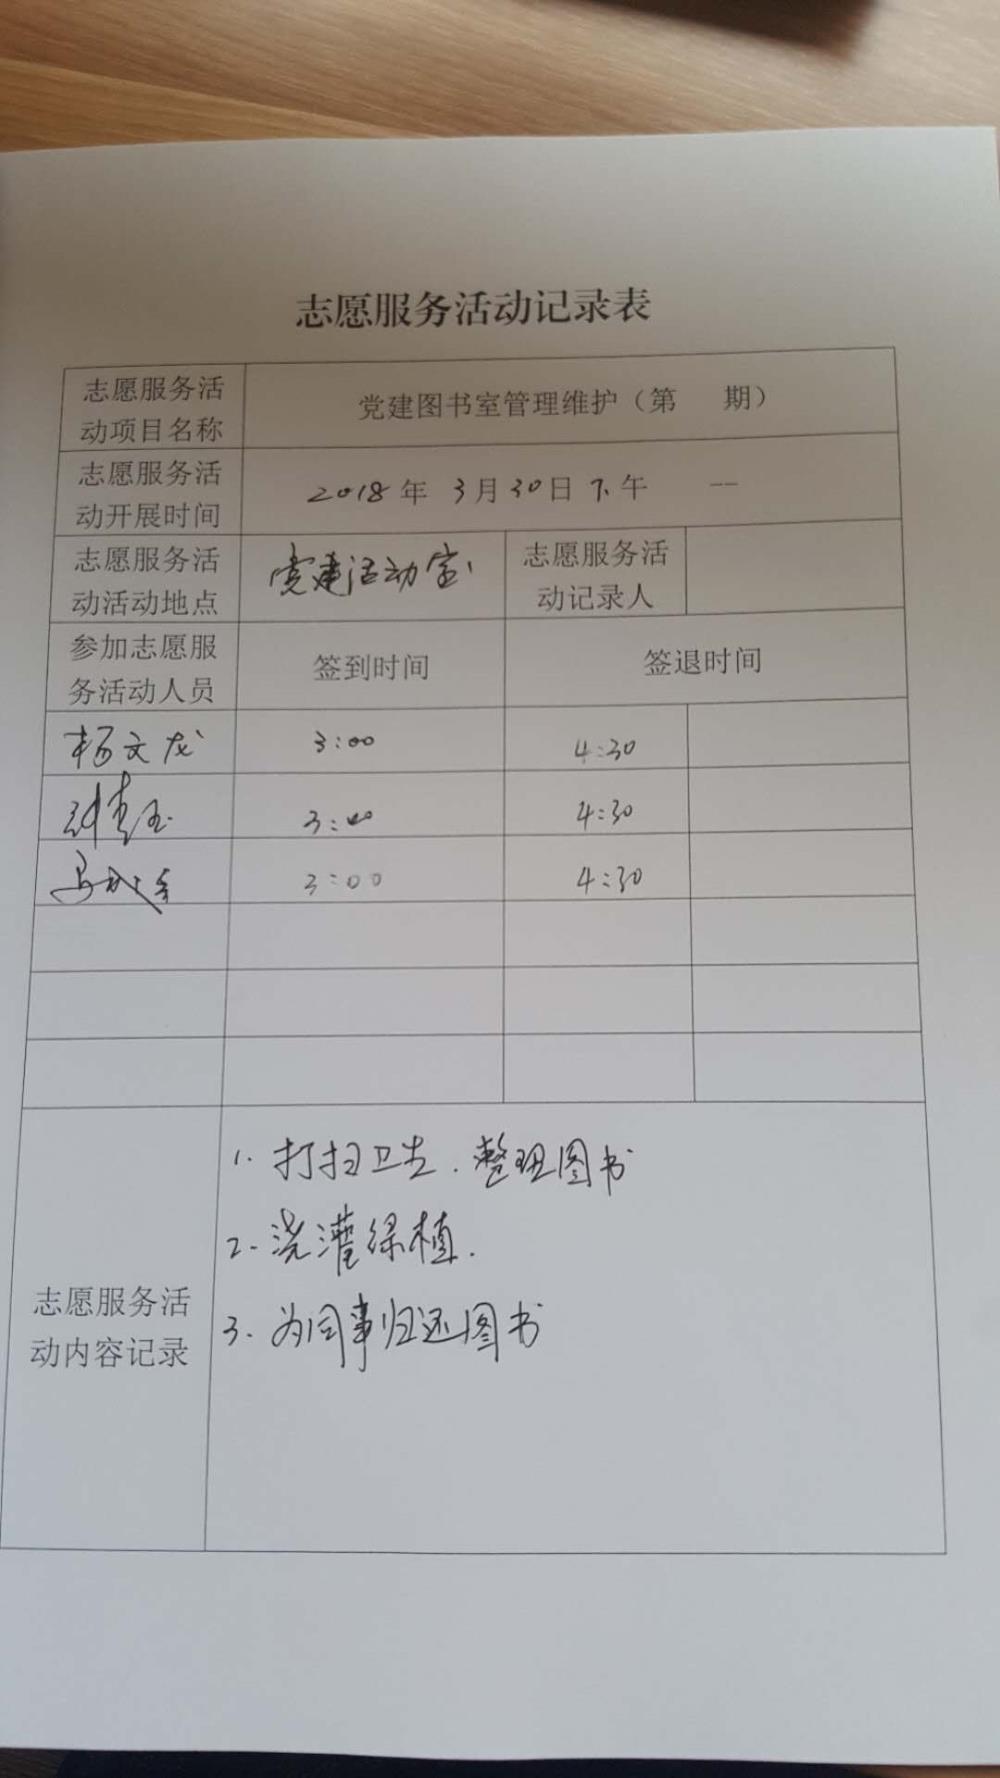 志愿服务活动记录表
志愿服务活
动项目名称
党建图书室管理维护（第 期）
志愿服务活
动开展时间
2018年 3月30日下午 --
志愿服务活
动活动地点
党建活动室
志愿服务活
动记录人
参加志愿服
务活动人员
签到时间
签退时间
杨文龙
3:00
4:30
3:00
4:30
3:00
4:30
志愿服务活
动内容记录
1. 打扫卫生.整理图书
2. 浇灌绿植.
3. 为同事归还图书